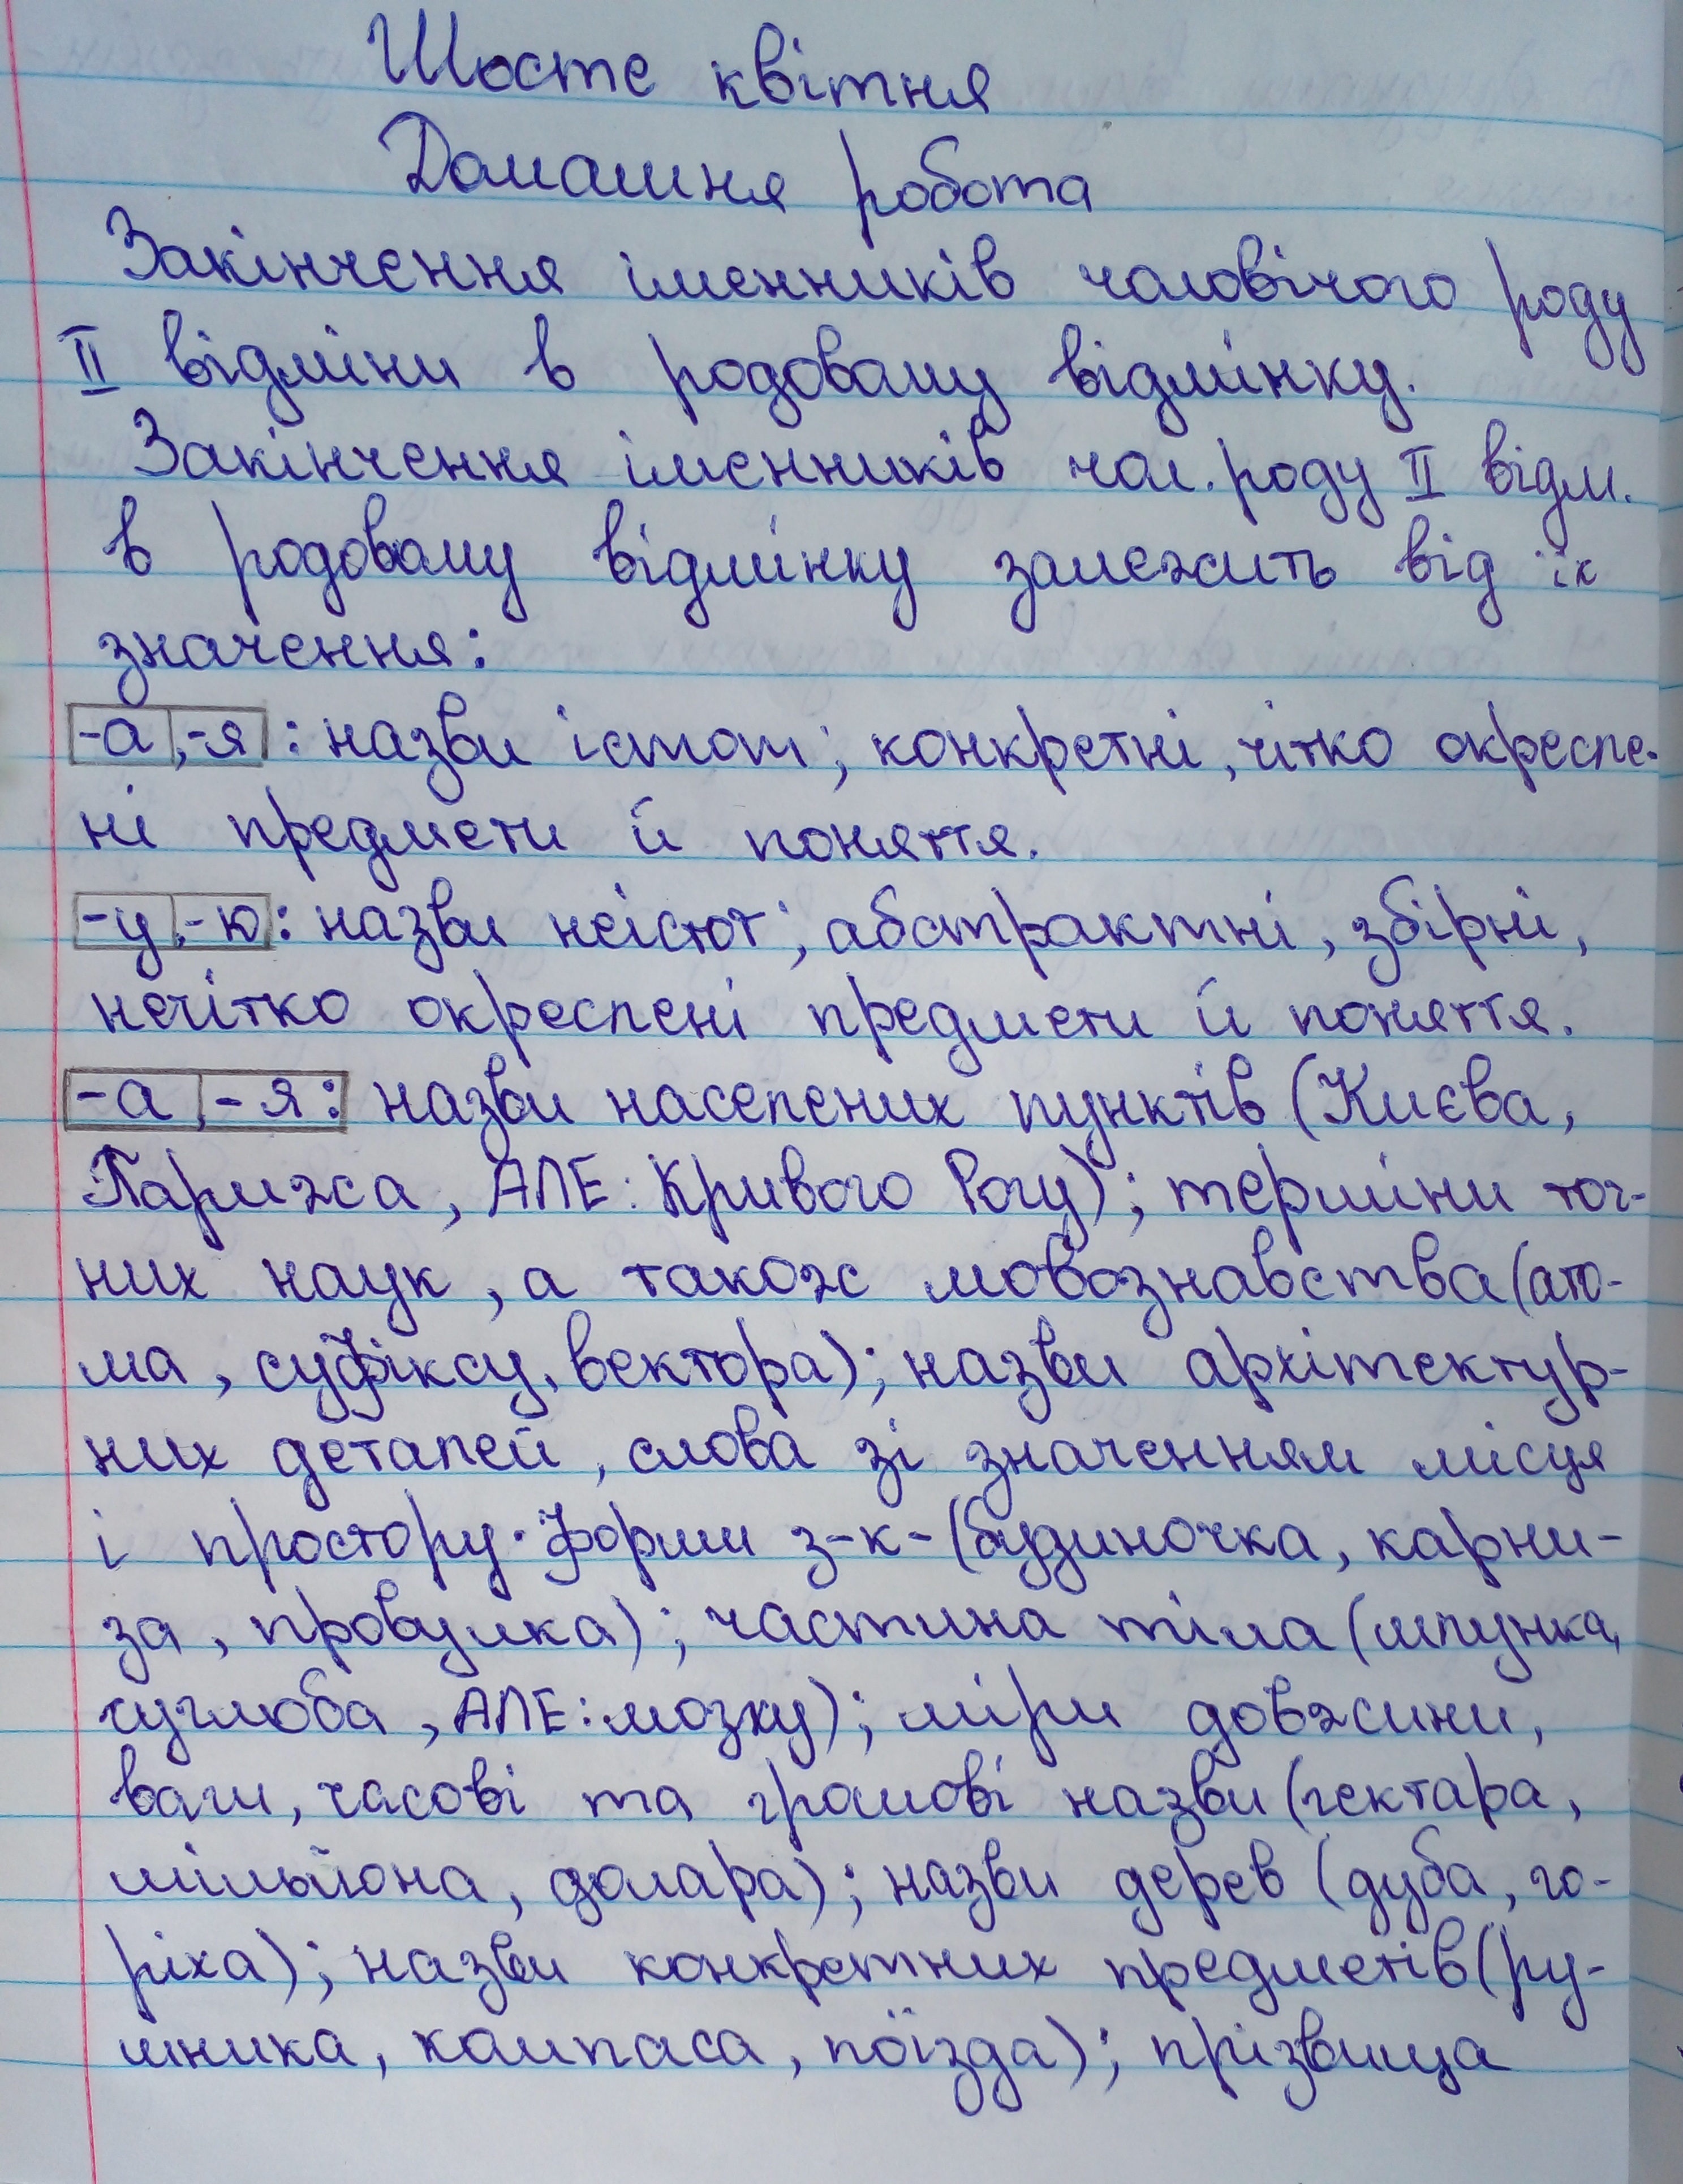 Шосте квітня
Домашня робота
Закінчення іменників чоловічого роду
II відміни в родовому відмінку.
Закінчення іменників чол. роду II відм.
в родовому відмінку залежить від їх
значення:
-а, -я : назви істот; конкретні, чітко окресле-
ні предмети й поняття.
-у, -ю : назви неістот; абстрактні, збірні,
нечітко окреслені предмети й поняття.
-а, -я : назви населених пунктів (Києва,
Парижа, АЛЕ: Кривого Рогу); терміни точ-
них наук, а також мовознавства (ато-
ма, суфіксу, вектора); назви архітектур-
них деталей, слова зі значенням місця
і простору. Форми з -к- (будиночка, карни-
за, провулка); частина тіла (шлунка,
суглоба, АЛЕ: мозку); міри довжини,
ваги, часові та грошові назви (гектара,
мільйона, долара); назви дерев (дуба, го-
ріха); назви конкретних предметів (ру-
шника, компаса, поїзда); прізвища